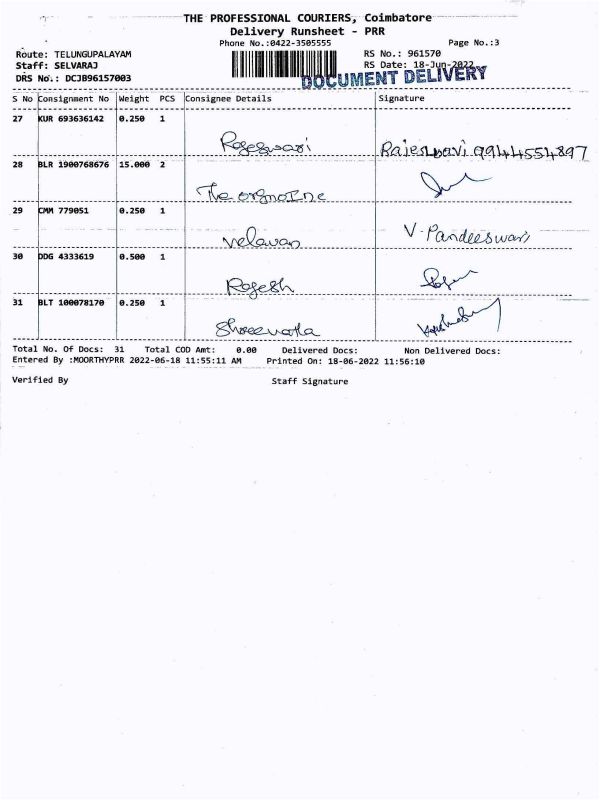 THE PROFESSIONAL COURIERS, Coimbatore
Delivery Runsheet - PRR
Phone No.:0422-3505555 Page No.:3
Route: TELUNGUPALAYAM RS No.: 961570
Staff: SELVARAJ RS Date: 18-Jun-2022
DRS No.: DCJB96157003 DOCUMENT DELIVERY
S No Consignment No Weight PCS Consignee Details Signature
27 KUR 693636142 0.250 1
Rajeswari Rajeswari 9944554897
28 BLR 1900768676 15.000 2
The
29 CMM 779051 0.250 1
velavan V. Pandeeswari
30 DDG 4333619 0.500 1
Rajesh
31 BLT 100078170 0.250 1
Total No. Of Docs: 31 Total COD Amt: 0.00 Delivered Docs: Non Delivered Docs:
Entered By :MOORTHYPRR 2022-06-18 11:55:11 AM Printed On: 18-06-2022 11:56:10
Verified By Staff Signature